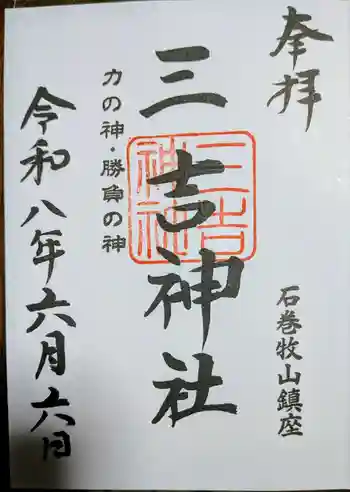 奉拝
石巻牧山鎮座
三吉神社
三吉神社
力の神・勝負の神
令和八年六月六日